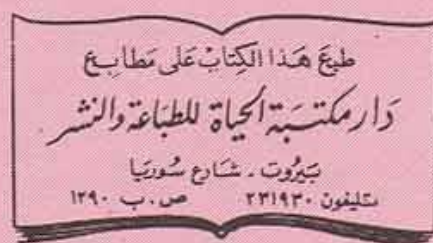 طبع هَذا الكِتابْ عَلى مَطابِع
دَار مكتَبَة الحيَاة للطبَاعَة وَالنشر
بَيروت ـ شارع سُوريَا
تليفون ٢٣١٩٣٠ ص.ب ١٢٩٠